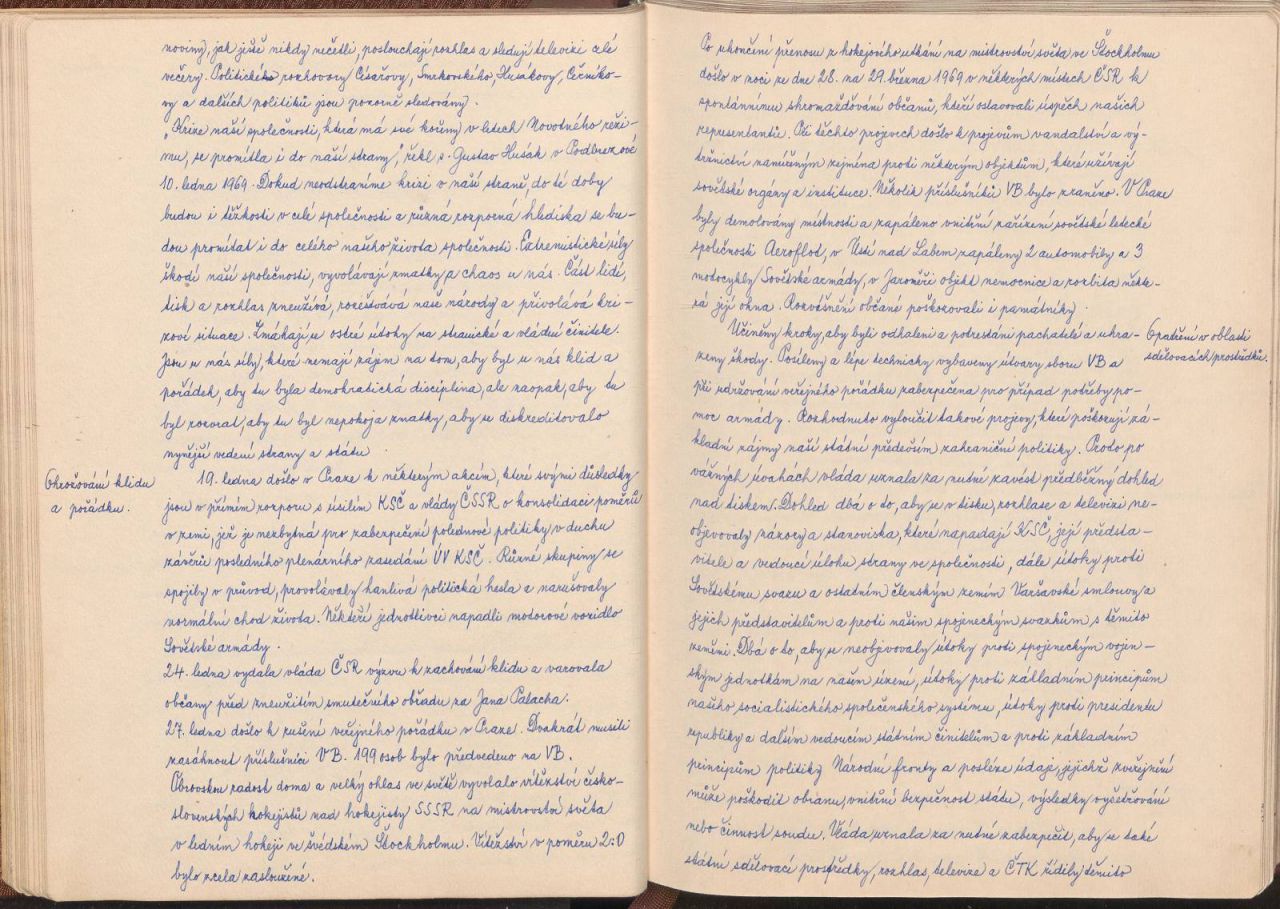 noviny, jak ještě nikdy nečetli, poslouchají rozhlas a sledují televizi celé
večery. Politické rozhovory Císařovy, Smrkovského, Husákovy, Černíko-
vy a dalších politiků jsou pozorně sledovány.
"Krize naší společnosti, která má své kořiny v letech Novotného reži-
mu, se promítla i do naší strany," řekl s. Gustav Husák v Podbrezové
10. ledna 1969. Dokud neodstraníme krizi v naší straně, do té doby
budou i těžkosti v celé společnosti a různá rozporná hlediska se bu-
dou promítat i do celého našeho života společnosti. Extremistické síly
škodí naší společnosti, vyvolávají zmatky a chaos u nás. Část lidí,
tisk a rozhlas zneužívá, poceštvává naše národy a přivolává kri-
zové situace. Zmáhají se ostré útoky na stranické a vládní činitele.
Jsou u nás síly, které nemají zájem na tom, aby byl u nás klid a
pořádek, aby tu byla demokratická disciplina, ale naopak, aby tu
byl rozvrat, aby tu byl nepokoj a zmatky, aby se diskreditovalo
nynější vedení strany a státu.
Ohrožování klidu
a pořádku.
19. ledna došlo v Praze k některým akcím, které svými důsledky
jsou v přímém rozporu s úsilím KSČ a vlády ČSSR o konsolidaci poměrů
v zemi, jež je nezbytná pro zabezpečení polednové politiky v duchu
závěrů posledního plenárního zasedání ÚV KSČ. Různé skupiny se
spojily v průvod, provolávaly hanlivá politická hesla a narušovaly
normální chod života. Někteří jednotlivci napadli motorové vozidlo
Sovětské armády.
24. ledna vydala vláda ČSR výzvu k zachování klidu a varovala
občany před zneužitím smutečního obřadu za Jana Palacha.
27. ledna došlo k rušení veřejného pořádku v Praze. Dvakrát museli
zasáhnout příslušníci VB. 199 osob bylo předvedeno na VB.
Obrovskou radost doma a velký ohlas ve světě vyvolalo vítězství česko-
slovenských hokejistů nad hokejisty SSSR na mistrovství světa
v ledním hokeji ve švédském Štockholmu. Vítězství v poměru 2:0
bylo zcela zasloužené.
Po ukončení přenosu z hokejového utkání na mistrovství světa ve Štockholmu
došlo v noci ze dne 28. na 29. března 1969 v některých místech ČSR k
spontánnímu shromažďování občanů, kteří oslavovali úspěch našich
representantů. Při těchto projevech došlo k projevům vandalství a vý-
tržnictví zamířeným zejména proti některým objektům, které užívají
sovětské orgány a instituce. Několik příslušníků VB bylo zraněno. V Praze
byly demolovány místnosti a zapáleno vnitřní zařízení sovětské letecké
společnosti Aeroflod, v Ústí nad Labem zapáleny 2 automobily a 3
motocykly Sovětské armády, v Jaroměři objekt nemocnice a rozbita někte-
rá její okna. Rozvášnění občané poškozovali i památníky.
Učiněny kroky, aby byli odhaleni a potrestáni pachatelé a uhra-
zeny škody. Posíleny a lépe technicky vybaveny útvary sboru VB a
při udržování veřejného pořádku zabezpečena pro případ potřeby po-
moc armády. Rozhodnuto vyloučit takové projevy, které poškozují zá-
kladní zájmy naší státní především zahraniční politiky. Proto po
vážných úvahách vláda uznala za nutné zavést předběžný dohled
nad tiskem. Dohled dbá o to, aby se v tisku, rozhlase a televizi ne-
objevovaly názory a stanoviska, které napadají KSČ, její předsta-
vitele a vedoucí úlohu strany ve společnosti, dále útoky proti
Sovětskému svazu a ostatním členským zemím Varšavské smlouvy a
jejich představitelům a proti našim spojeneckým svazkům s těmito
zeměmi. Dbá o to, aby se neobjevovaly útoky proti spojeneckým vojen-
ským jednotkám na našem území, útoky proti základním principům
našeho socialistického společenského systému, útoky proti presidentu
republiky a dalším vedoucím státním činitelům a proti základním
principům politiky Národní fronty a posléze údaje, jejichž zveřejnění
může poškodit obranu, vnitřní bezpečnost státu, výsledky vyšetřování
nebo činnost soudu. Vláda uznala za nutné zabezpečit, aby se také
státní sdělovací prostředky, rozhlas, televize a ČTK řídily těmito
Opatření v oblasti
sdělovacích prostředků.